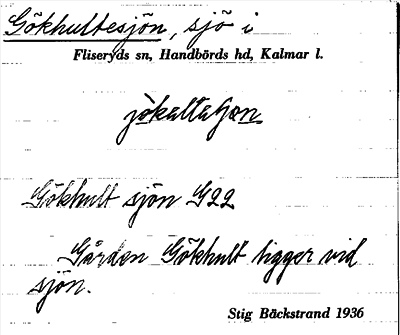 Gökhultesjön, sjö i
Fliseryds sn, Handbörds hd, Kalmar l.
Gökhult sjön G22
Gården Gökhult ligger vid
sjön.
Stig Bäckstrand 1936